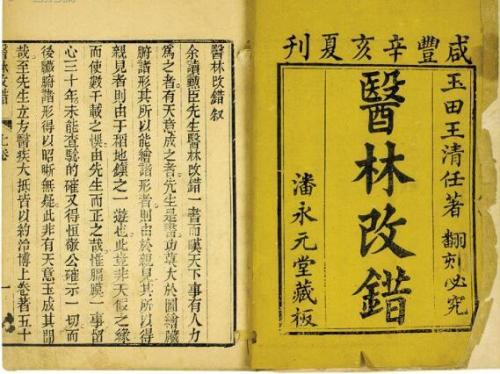 咸豐辛亥夏刊
玉田王清任著 翻刻必究
醫林改錯
潘永元堂藏板
醫林改錯叙
余讀勳臣先生醫林改錯一書而嘆天下事有人力
爲之者有天意成之者先生是書功莫大於圖繪臟
腑諸形其所以能繪諸形者則由於親見其所以得
親見者則由于稻地鎮之一遊也此豈非天假之緣
而使數千載之悞由先生而正之哉惟膈膜一事留
心三十年未能查驗的確又得恒敬公確示一切而
後臟腑諸形得以昭晰無疑此非有天意玉成其間
哉至先生立方醫疾大抵皆以約治博上卷著五十
醫林改錯 上卷 一